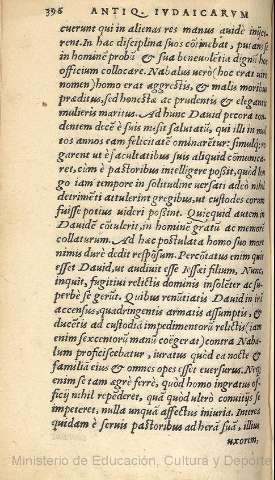 396 ANTIQ. IVDAICARVM
cuerunt qui in alienas res manus auidè iniice-
rent. In hac disciplina suos cõtinebat, putans se
in homine probũ & sua beneuolẽtia dignũ hoc
officium collocare. Nabalus uerò (hoc erat uiro
nomen) homo erat aggrestis, & malis moribus
præditus, sed honesta ac prudentis & elegantis
mulieris maritus. Ad hunc Dauid pecora ton-
dentem decẽ è suis misit salutatũ, qui illi in mul
tos annos eam felicitatẽ ominarẽtur: simulq; ro
garent ut è facultatibus suis aliquid cõmunica-
ret, cùm è pastoribus intelligere posset, quòd lon
go iam tempore in solitudine uersati adeò nihil
detrimẽti attulerint gregibus, ut custodes eorum
fuisse potius uideri possint. Quicquid autem in
Dauidẽ cõtulerit, in hominẽ gratũ ac memorẽ
collaturum. Ad hæc postulata homo suo mori
nimis durè dedit respõsum. Percõtatus enim quis
esset Dauid, ut audiuit esse Iessæi filium, Nunc,
inquit, fugitiui relictis dominis insolẽter ac su-
perbè se gerũt. Quibus renũtiatis Dauid in irã
accensus, quadringentis armatis assumptis, &
ducẽtis ad custodiã impedimentorũ relictis (iam
enim sexcentorũ manũ coëgerat) contra Naba-
lum proficiscebatur, iuratus quòd ea nocte &
familiã eius & omnes opes esset euersurus. Neq;
enim se tam ægrè ferre, quòd homo ingratus of-
ficij nihil repẽderet, quã quòd ulerò conuitijs se
impeteret, nulla unquã affectus iniuria. Interea
quidam è seruis pastoribus ad herã suã, illius
uxorem,
Ministerio de Educación, Cultura y Deporte